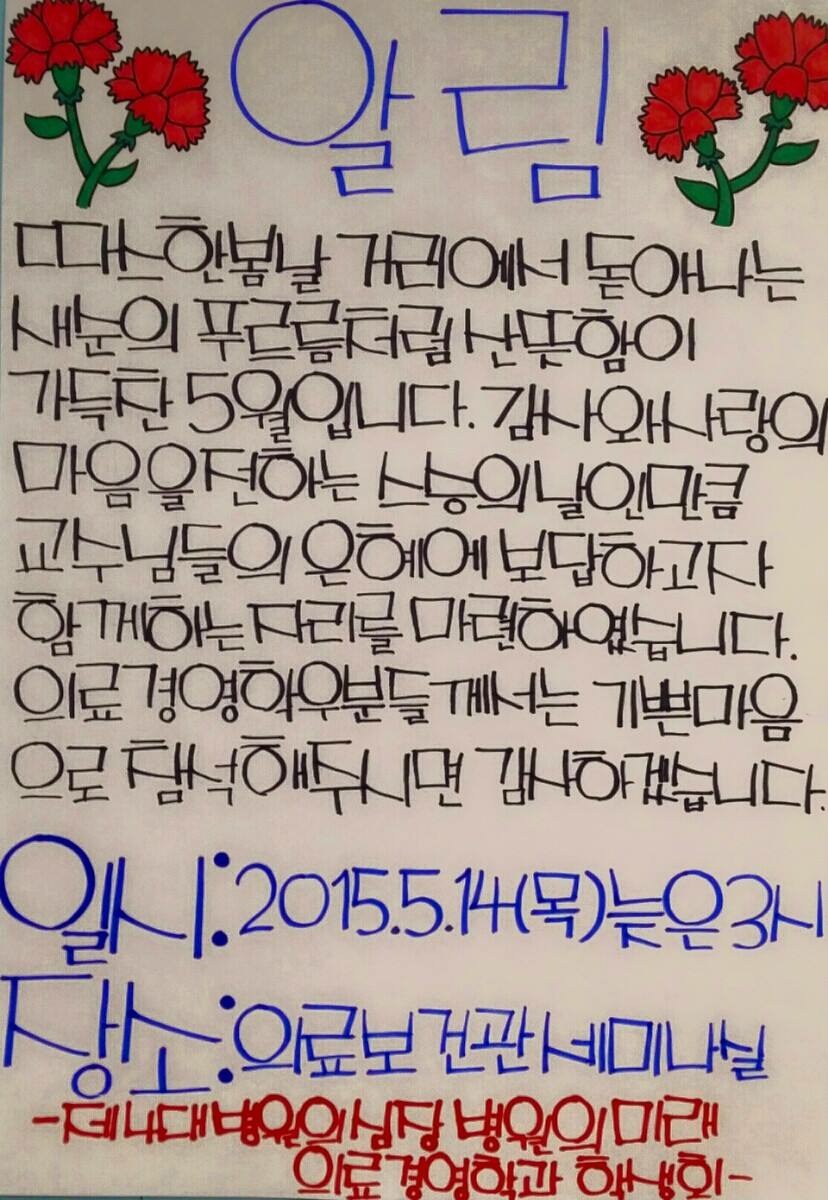 알림
따스한봄날 거리에서 돋아나는
새눈의 푸르름처럼 산뜻함이
가득찬 5월입니다. 감사와사랑의
마음을전하는 스승의날인만큼
교수님들의 은혜에 보답하고자
함께하는자리를 마련하였습니다.
의료경영학우분들께서는 기쁜마음
으로 참석해주시면 감사하겠습니다.
일시:2015.5.14(목)늦은3시
장소:의료보건관세미나실
-제4대병원의심장 병원의미래
의료경영학과 학생회-